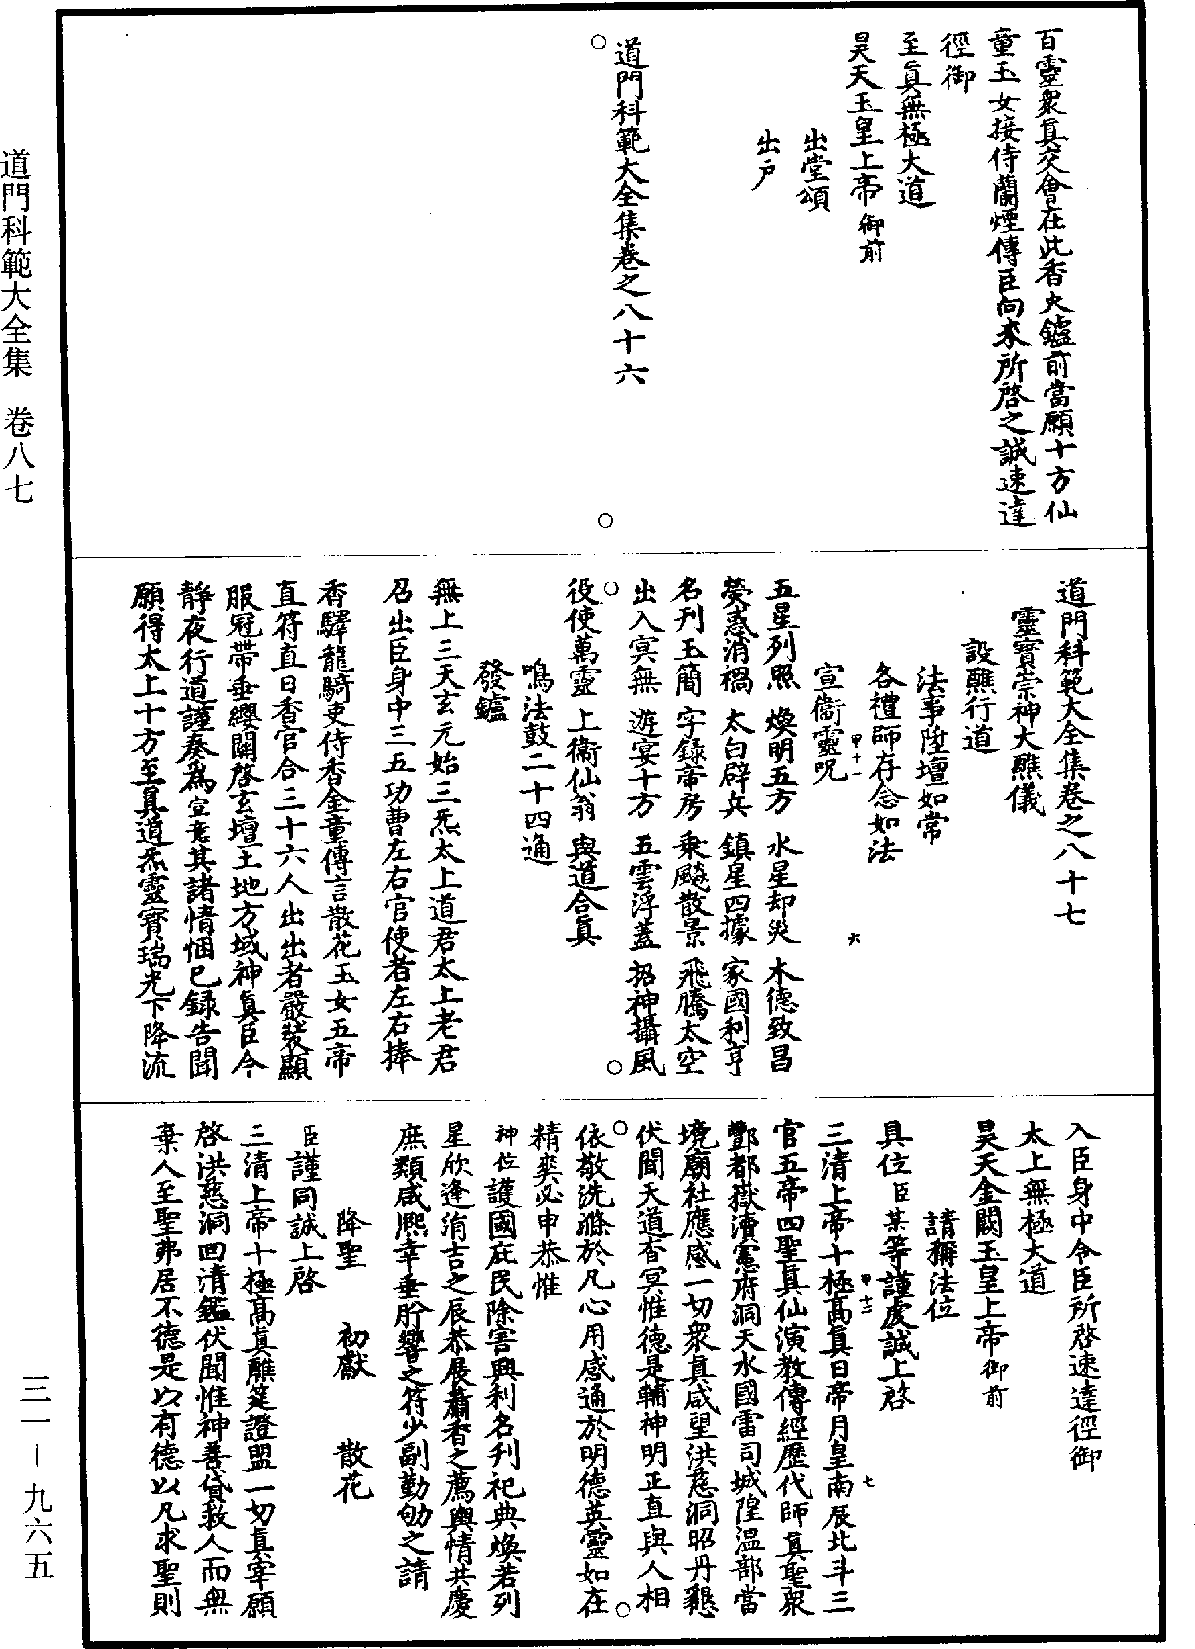 百靈衆真交會在此香火鑪前當願十方仙
童玉女接侍蘭煙傳臣向來所啓之誠速達
徑御
至真無極大道
昊天玉皇上帝御前
出堂頌
出户
道門科範大全集卷之八十六
道門科範大全集卷之八十七
靈寶崇神大醮儀
設醮行道
法事陞壇如常
各禮師存念如法
甲十一 六
宣衞靈呪
五星列照 煥明五方 水星却災 木德致昌
熒惑消禍 太白辟兵 鎮星四據 家國利亨
名刊玉簡 字録帝房 乘飈散景 飛騰太空
出入冥無 遊宴十方 五雲浮蓋 招神攝風
役使萬靈 上衞仙翁 與道合真
鳴法鼓二十四通
發鑪
無上三天玄元始三炁太上道君太上老君
召出臣身中三五功曹左右官使者左右捧
香驛龍騎吏侍香金童傳言散花玉女五帝
直符直日香官合三十六人出出者嚴裝顯
服冠帶垂纓關啓玄壇土地方域神真臣今
靜夜行道謹奏爲宣意其諸情悃已録告聞
願得太上十方至真道炁靈寶瑞光下降流
入臣身中令臣所啓速達徑御
太上無極大道
昊天金闕玉皇上帝御前
請稱法位
具位臣某等謹虔誠上啓
甲十二 七
三清上帝十極高真日帝月皇南辰北斗三
官五帝四聖真仙演教傳經歷代師真聖衆
酆都嶽瀆憲府洞天水國雷司城隍温部當
境廟社應感一切衆真咸望洪慈洞昭丹懇
伏聞天道杳冥惟德是輔神明正直與人相
依敬洗滌於凡心用感通於明德英靈如在
精爽必申恭惟
神位護國庇民除害興利名刊祀典煥若列
星欣逢涓吉之辰恭展蕭香之薦輿情共慶
庶類咸熙幸垂肸蠁之符少副勤劬之請
降聖 初獻 散花
臣謹同誠上啓
三清上帝十極高真醮筵證盟一切真宰願
啓洪慈洞回清鑑伏聞惟神善貸救人而無
棄人至聖弗居不德是以有德以凡求聖則
道門科範大全集 卷八七
三一—九六五